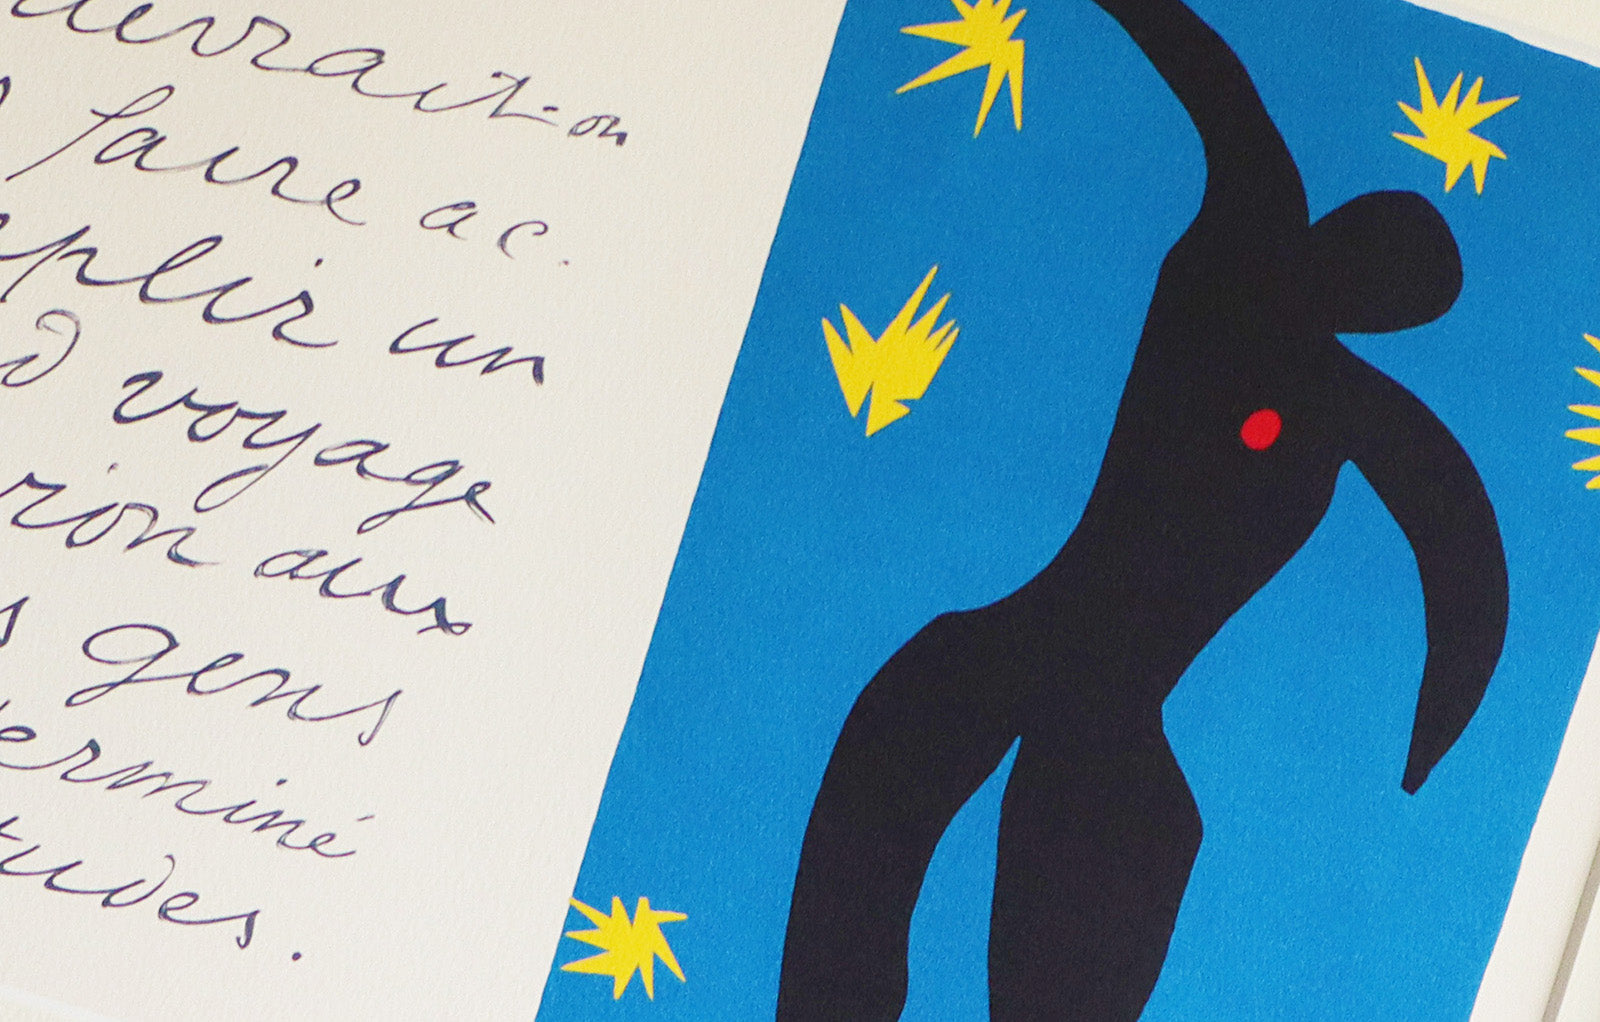 devrait-on
faire ac.
plir un
d voyage
vion aux
s gens
erminé
tudes.